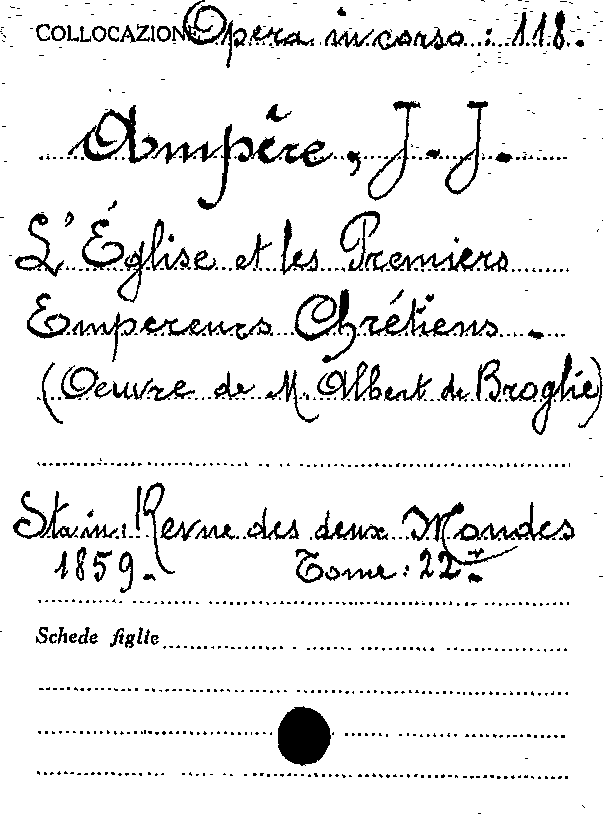 COLLOCAZIONE Opera in corso: 118.
Ampère, J. J.
L'Église et les Premiers
Empereurs Chrétiens.
(Oeuvre de M. Albert de Broglie)
Sta in: Revue des deux Mondes
1859. Tome: 22.
Schede figlie